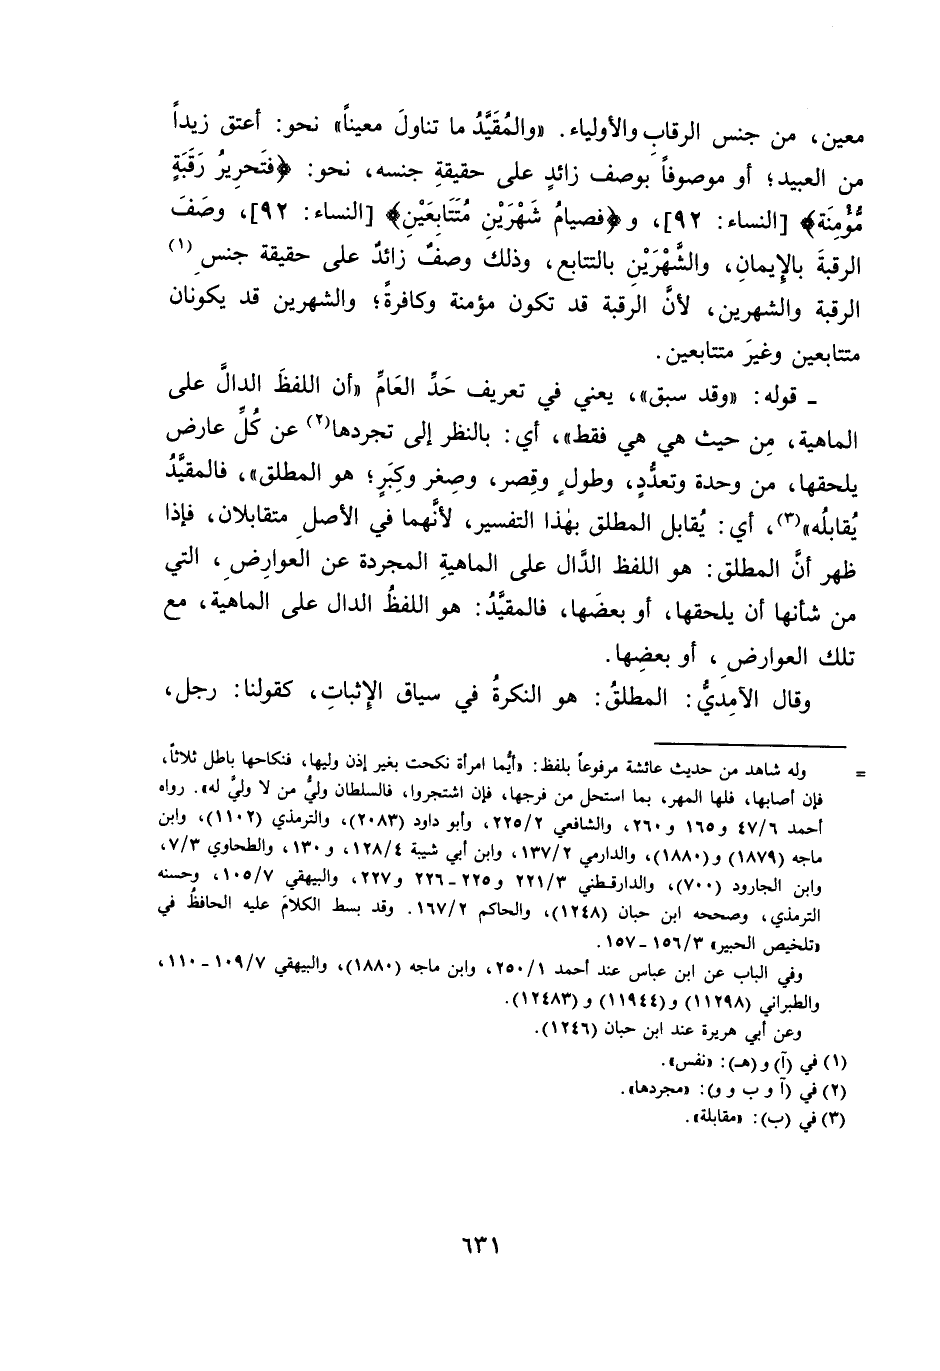 معين، من جنس الرقابِ والأولياء. «والمُقَيَّدُ ما تناولَ معيناً» نحو: أعتق زيداً
من العبيد؛ أو موصوفاً بوصف زائدٍ على حقيقةِ جنسه، نحو: ﴿فَتَحريرُ رَقَبَةٍ
مُّؤْمِنَة﴾ [النساء: ٩٢]، و ﴿فصيامُ شَهْرَيْنِ مُتَتَابِعَيْنِ﴾ [النساء: ٩٢]، وصَفَ
الرقبةَ بالإِيمانِ، والشَّهْرَيْنِ بالتتابع، وذلك وصفٌ زائدٌ على حقيقة جنسِ(١)
الرقبة والشهرين، لأنَّ الرقبة قد تكون مؤمنة وكافرةً؛ والشهرين قد يكونان
متتابعين وغيرَ متتابعين.
ـ قوله: «وقد سبق»، يعني في تعريف حَدِّ العَامِّ «أن اللفظَ الدالَّ على
الماهية، مِن حيث هي هي فقط»، أي: بالنظر إلى تجردها(٢) عن كُلِّ عارض
يلحقها، من وحدة وتعدُّدٍ، وطولٍ وقِصر، وصِغر وكِبَرٍ؛ هو المطلق»، فالمقيَّدُ
يُقابلُه»(٣)، أي: يُقابل المطلق بهٰذا التفسير، لأنَّهما في الأصلِ متقابلان، فإذا
ظهر أنَّ المطلق: هو اللفظ الدَّال على الماهيةِ المجردة عن العوارِضِ، التي
من شأنها أن يلحقها، أو بعضَها، فالمقيَّدُ: هو اللفظُ الدال على الماهية، مع
تلك العوارضِ، أو بعضِها.
وقال الآمِديُّ: المطلقُ: هو النكرةُ في سياق الإِثباتِ، كقولنا: رجل،
= وله شاهد من حديث عائشة مرفوعاً بلفظ: «أيُّما امرأة نكحت بغير إذن وليها، فنكاحها باطل ثلاثاً،
فإن أصابها، فلها المهر، بما استحل من فرجها، فإن اشتجروا، فالسلطان وليُّ من لا وليَّ له». رواه
أحمد ٤٧/٦ و١٦٥ و٢٦٠، والشافعي ٢٢٥/٢، وأبو داود (٢٠٨٣)، والترمذي (١١٠٢)، وابن
ماجه (١٨٧٩) و(١٨٨٠)، والدارمي ١٣٧/٢، وابن أبي شيبة ١٢٨/٤، و١٣٠، والطحاوي ٧/٣،
وابن الجارود (٧٠٠)، والدارقطني ٢٢١/٣ و٢٢٥ـ٢٢٦ و٢٢٧، والبيهقي ١٠٥/٧، وحسنه
الترمذي، وصححه ابن حبان (١٢٤٨)، والحاكم ١٦٧/٢. وقد بسط الكلامَ عليه الحافظُ في
«تلخيص الحبير» ١٥٦/٣ـ١٥٧.
وفي الباب عن ابن عباس عند أحمد ٢٥٠/١، وابن ماجه (١٨٨٠)، والبيهقي ١٠٩/٧ـ١١٠،
والطبراني (١١٢٩٨) و(١١٩٤٤) و(١٢٤٨٣).
وعن أبي هريرة عند ابن حبان (١٢٤٦).
(١) في (آ) و(هـ): «نفس».
(٢) في (آ و ب و و): «مجردها».
(٣) في (ب): «مقابلة».
٦٣١